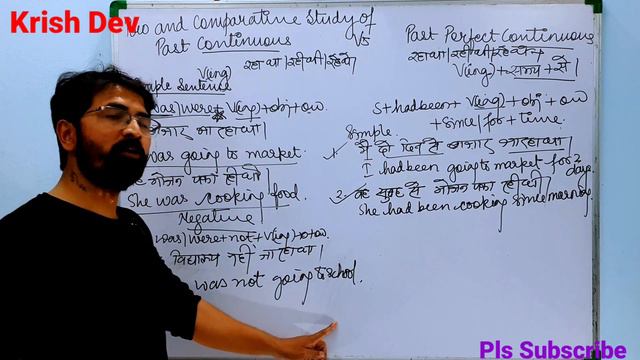 Krish Dev
and Comparative Study of
Past Continuous
VS
Past Perfect Continuous
रहा था | रही थी | रहे थे
रहा था | रही थी | रहे थे +
V(ing)
V(ing) + समय + से
Simple Sentence
was | were + V(ing) + obj + ow
S + had been + V(ing) + obj + ow
+ since | for + time.
बाजार जा रहा था।
was going to market.
1. Simple
मैं दो दिन से बाजार जा रहा था।
I had been going to market for 2 days.
भोजन पका रही थी।
She was cooking food.
2. वह सुबह से भोजन पका रही थी।
She had been cooking since morning.
Negative
was | were + not + V(ing) + o + ow.
विद्यालय नहीं जा रहा था।
was not going to school.
Pls Subscribe